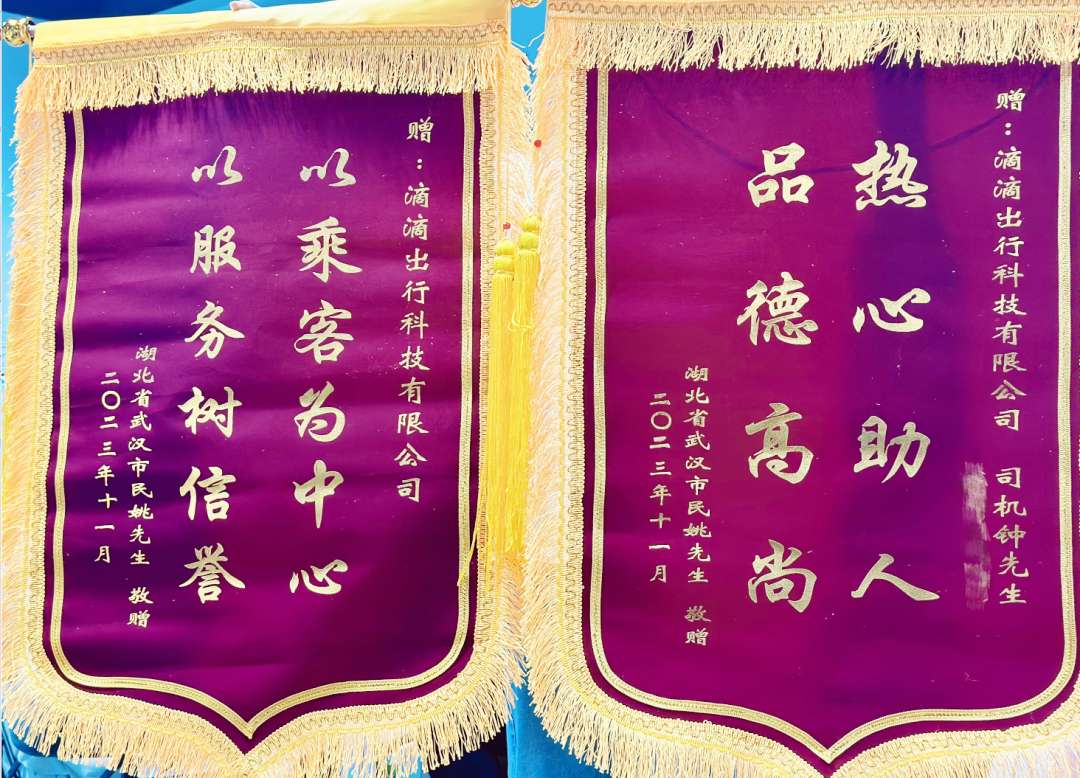 赠：滴滴出行科技有限公司
以乘客为中心
以服务树信誉
湖北省武汉市民姚先生 敬赠
二〇二三年十一月
赠：滴滴出行科技有限公司 司机钟先生
热心助人
品德高尚
湖北省武汉市民姚先生 敬赠
二〇二三年十一月